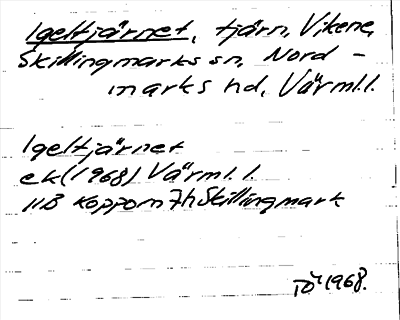 Igeltjärnet, tjärn, Vikene,
Skillingmarks sn, Nord-
marks hd, Värml.l.
Igeltjärnet
ek(1968) Värml.l.
11B Koppom 7h Skillingmark
TÖ 1968.